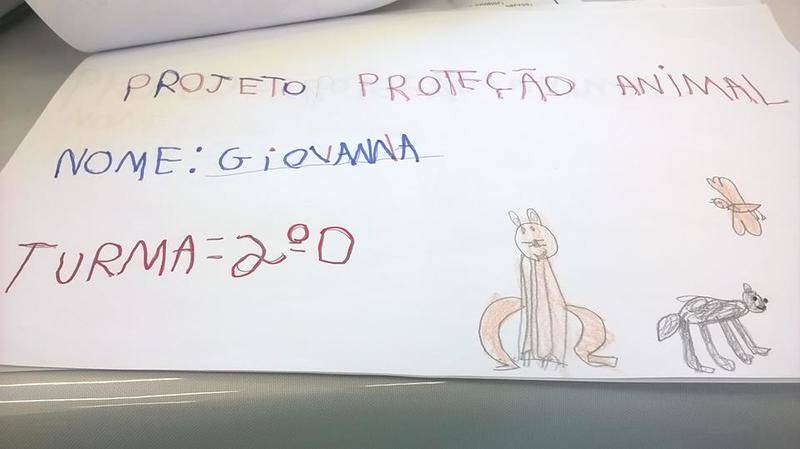 PROJETO PROTEÇÃO ANiMAL
NOME: GiOVANNA
TURMA=2ºD